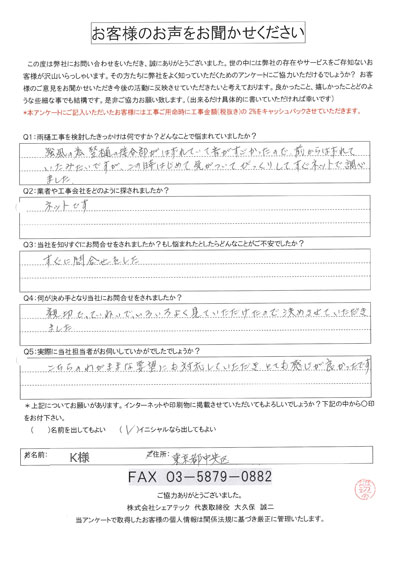 お客様のお声をお聞かせください
この度は弊社にお問い合わせをいただき、誠にありがとうございました。世の中には弊社の存在やサービスをご存知ないお
客様が沢山いらっしゃいます。その方たちに弊社をよく知っていただくためのアンケートにご協力いただけるでしょうか? お客
様のご意見をお聞かせいただき今後の活動に反映させていただきたいと考えております。良かったこと、嬉しかったことどのよ
うな些細な事でも結構です。是非ご協力お願い致します。(出来るだけ具体的に書いていただければ幸いです)
*本アンケートにご記入いただいたお客様には工事ご用命時に工事金額(税抜き)の 2%をキャッシュバックさせていただきます。
Q1:雨樋工事を検討したきっかけは何ですか?どんなことで悩まれていましたか?
強風の為 竪樋の接合部がはずれていて音がすごかったので、前からはずれて
いたみたいですが、この時はじめて気がついてびっくりしてすぐネットで調べ
ました
Q2:業者や工事会社をどのように探されましたか?
ネットです
Q3:当社を知りすぐにお問合せをされましたか?もし悩まれたとしたらどんなことがご不安でしたか?
すぐに問合せをした
Q4:何が決め手となり当社にお問合せをされましたか?
親切で、ていねいで、いろいろよく見ていただけたので決めさせていただき
ました
Q5:実際に当社担当者がお伺いしていかがでしたでしょうか?
こちらのわがままな要望にも対応していただき とても感じが良かったです
*上記についてお願いがあります。インターネットや印刷物に掲載させていただいてもよろしいでしょうか?下記の中から〇印
をお付下さい。
( )名前を出してもよい (✓)イニシャルなら出してもよい
お名前: K様 ご住所: 東京都中央区
FAX 03-5879-0882
ご協力ありがとうございました。
株式会社シェアテック 代表取締役 大久保 誠二
当アンケートで取得したお客様の個人情報は関係法規に基づき厳正に管理いたします。